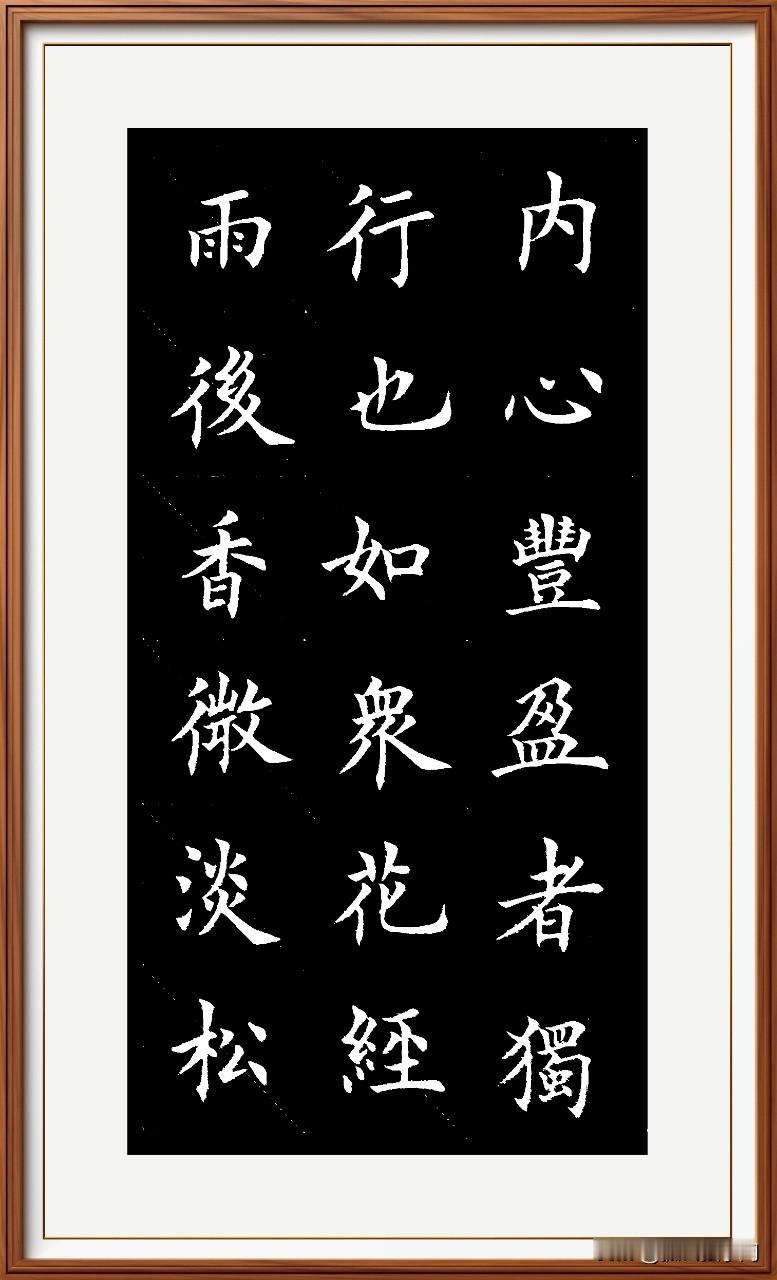 内心豐盈者獨
行也如衆花經
雨後香微淡松